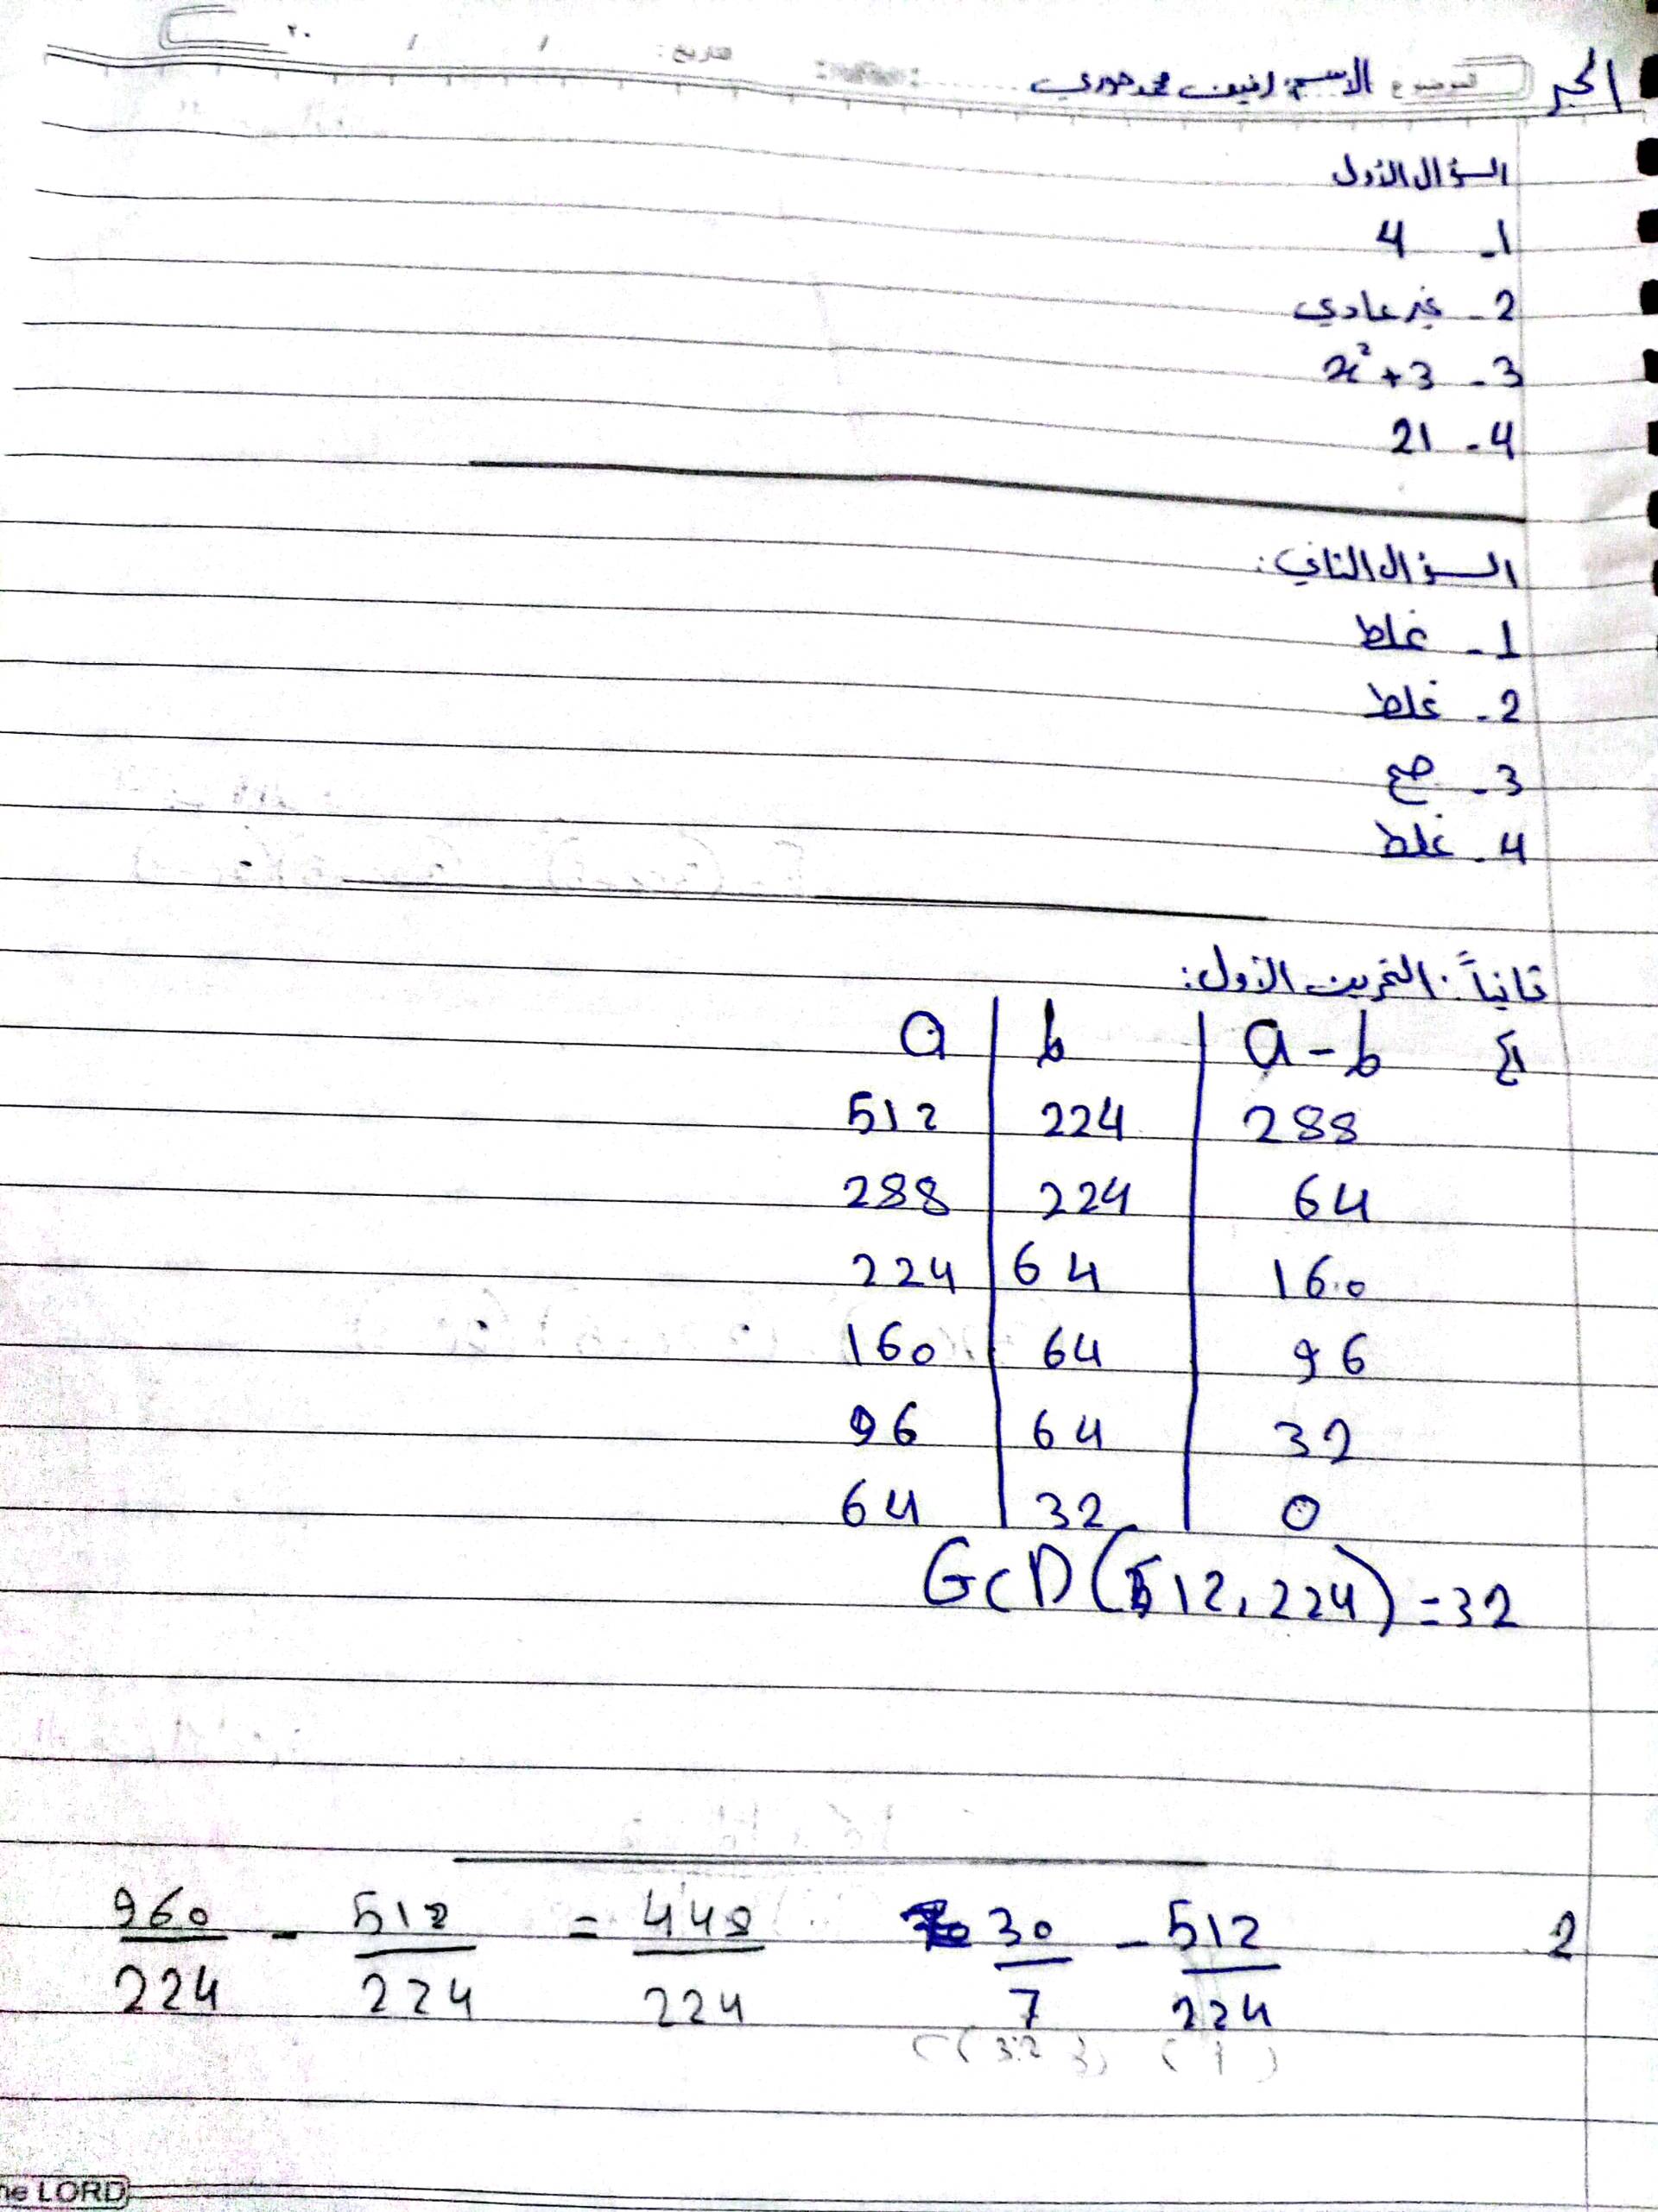 الجبر الموضوع الاسم: محمد حوري التاريخ: / / ٢٠
السؤال الأول
1- 4
2- غير عادي
3- x²+3
4- 21
السؤال الثاني:
1- غلط
2- غلط
3- صح
4- غلط
ثانياً: التمرين الأول:
a | b | a-b
512 | 224 | 288
288 | 224 | 64
224 | 64 | 160
160 | 64 | 96
96 | 64 | 32
64 | 32 | 0
GCD(512, 224) = 32
2 30/7 - 512/224
960/224 - 512/224 = 448/224
(32) (1)
he LORD